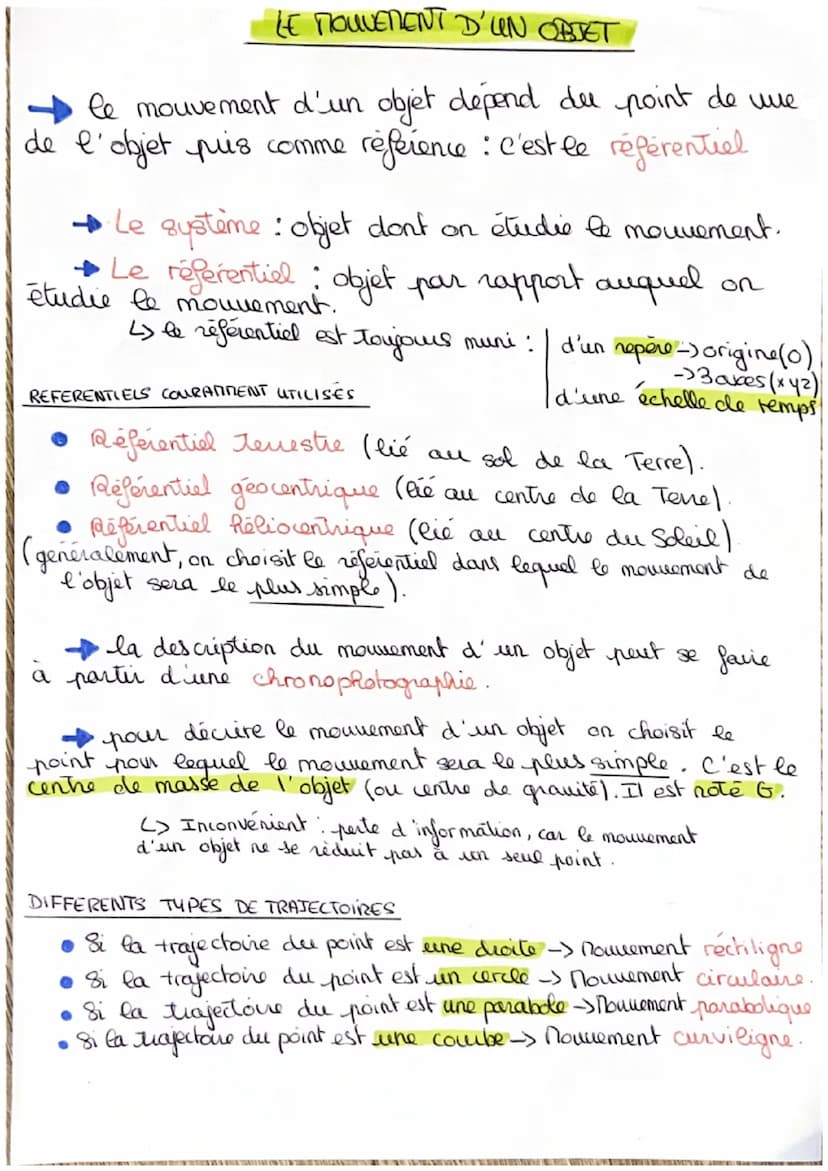 LE MOUVEMENT D'UN OBJET
→ le mouvement d'un objet dépend du point de vue
de l'objet pris comme référence : c'est le référentiel
→ Le système : objet dont on étudie le mouvement.
→ Le référentiel : objet par rapport auquel on
étudie le mouvement.
↳ le référentiel est toujours muni : d'un repère → origine(O)
→ 3 axes (x y z)
d'une échelle de temps
REFERENTIELS COURAMMENT UTILISÉS
• Référentiel Terrestre (lié au sol de la Terre).
• Référentiel géocentrique (lié au centre de la Terre).
• Référentiel héliocentrique (lié au centre du Soleil)
(généralement, on choisit le référentiel dans lequel le mouvement de
l'objet sera le plus simple).
→ la description du mouvement d'un objet peut se faire
à partir d'une chronophotographie.
→ pour décrire le mouvement d'un objet on choisit le
point pour lequel le mouvement sera le plus simple. C'est le
centre de masse de l'objet (ou centre de gravité). Il est noté G.
↳ Inconvénient : perte d'information, car le mouvement
d'un objet ne se réduit pas à un seul point.
DIFFERENTS TYPES DE TRAJECTOIRES
• Si la trajectoire du point est une droite → Mouvement réctiligne
• Si la trajectoire du point est un cercle → Mouvement circulaire.
• Si la trajectoire du point est une parabole → Mouvement parabolique
• Si la trajectoire du point est une courbe → Mouvement curviligne.